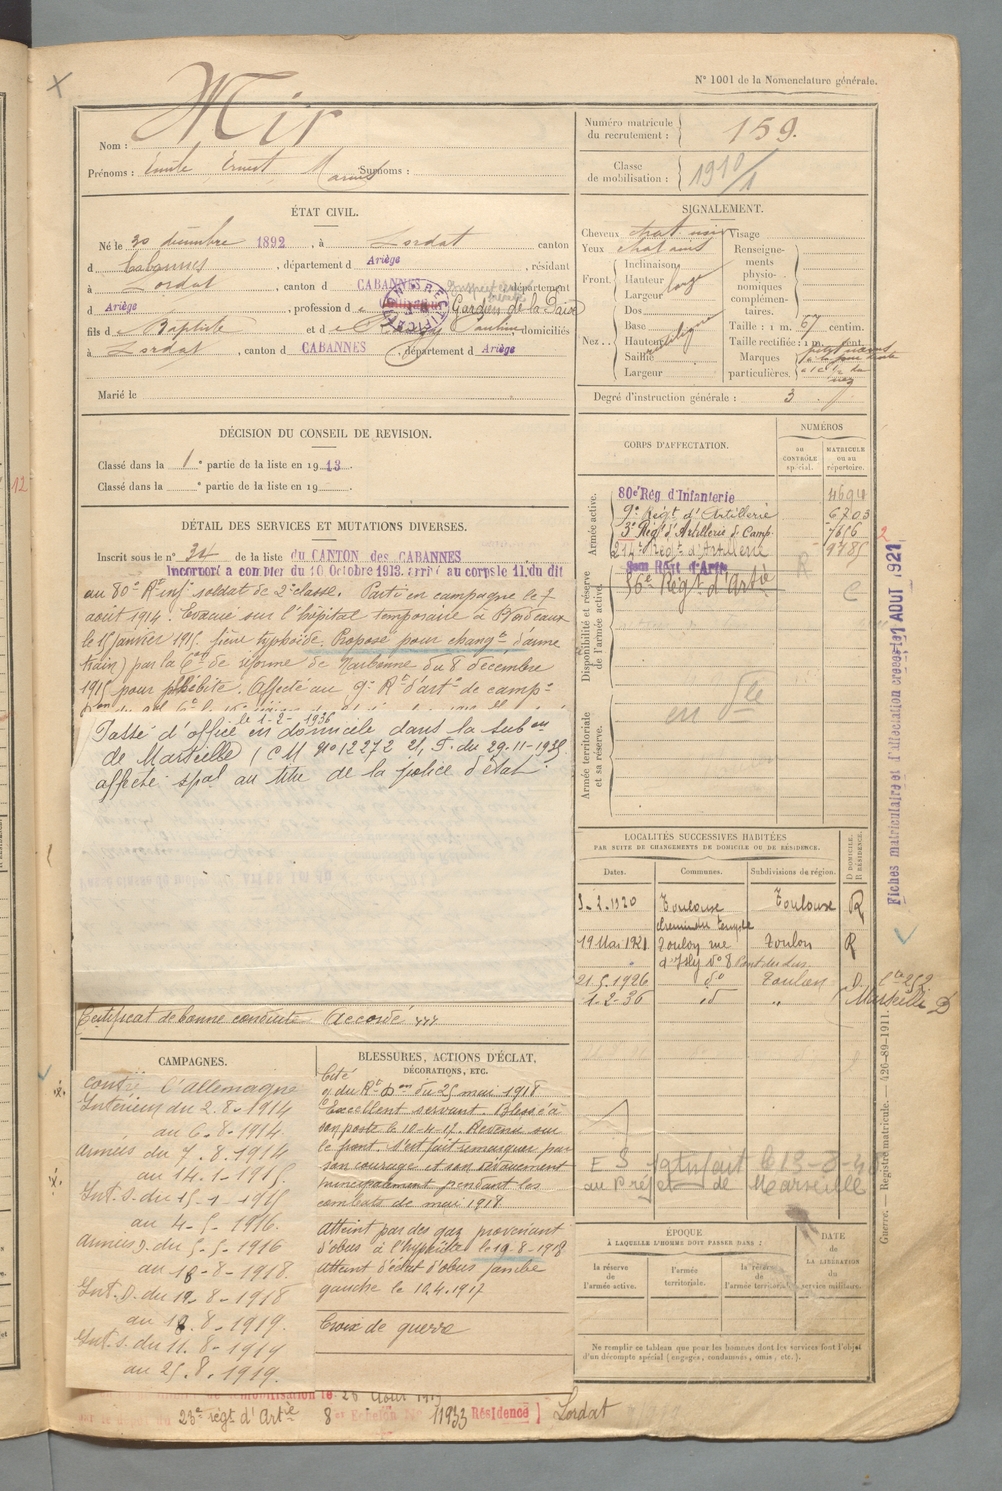 N° 1001 de la Nomenclature générale.
Nom : Mir
Prénoms : Emile Ernest Marius Surnoms :
Numéro matricule du recrutement : 159.
Classe de mobilisation : 1910/1
ÉTAT CIVIL.
Né le 30 décembre 1892, à Lordat canton
d Cabannes, département d Ariège, résidant
à Lordat, canton d CABANNES, département
d Ariège, profession d Gardien de la Paix
fils d e Baptiste et d e Pauline domiciliés
à Lordat, canton d CABANNES, département d Ariège
Marié le
RECTIFICATION
SIGNALEMENT.
Cheveux chat noir Visage
Yeux
Front. Inclinaison
Hauteur large
Largeur
Nez.. Dos
Base
Hauteur rectiligne
Saillie
Largeur
Renseignements physionomiques complémentaires.
Taille : 1 m. 67 centim.
Taille rectifiée : 1 m. cent.
Marques particulières.
Degré d'instruction générale : 3
DÉCISION DU CONSEIL DE REVISION.
Classé dans la 1e partie de la liste en 1913.
Classé dans la e partie de la liste en 19
DÉTAIL DES SERVICES ET MUTATIONS DIVERSES.
Inscrit sous le n° 34 de la liste du CANTON des CABANNES
Incorporé a compter du 10 Octobre 1913. arrivé au corps le 11. du dit
au 80e Rt inf. soldat de 2e classe. Parti en campagne le 7
août 1914. Evacué sur l'hôpital temporaire à Bordeaux
le 15 janvier 1915. fièvre typhoïde. Proposé pour changt d'arme
train) par la Con de réforme de Narbonne du 8 décembre
1915 pour phlébite. Affecté au 9e Rt d'artie de campne
Passé d'office le 1-2-1936 en domicile dans la subon
de Marseille (CM N° 12272 21, F. du 29-11-1935
affecté spal au titre de la police d'état.
Certificat de bonne conduite Accordé
CORPS D'AFFECTATION.
NUMÉROS
au CONTRÔLE spécial.
MATRICULE ou au répertoire.
Armée active.
80e Rég d'Infanterie 4694
9e Régt d'Artillerie 6703
3e Régt d'Artillerie de Camp. 7656
214e Régt d'Artillerie 9785
Disponibilité et réserve de l'armée active.
36e Régt d'Artie
R
C
Armée territoriale et sa réserve.
en Dle
Fiches matriculaire et d'affectation créées le 1 AOUT 1921
LOCALITÉS SUCCESSIVES HABITÉES
PAR SUITE DE CHANGEMENTS DE DOMICILE OU DE RÉSIDENCE.
Dates. Communes. Subdivisions de région. D DOMICILE. R RÉSIDENCE.
3-2-1920 Toulouse Toulouse R
chemin du temple
19 Mai 1921 Toulon rue Toulon R
d'Isly N° 8 Pont du Las
21.5.1926 do Toulon D.
1-2-36 id " Marseille D
ES au Préfet de Marseille
Guerre. — Registre matricule. — 426-89-1911.
CAMPAGNES.
contre l'allemagne
Intérieur du 2.8.1914
au 6.8.1914.
Armées du 7.8.1914
au 14.1.1915.
Int. S. du 15-1-1915
au 4-5-1916.
Armées D. du 5-5-1916
au 18-8-1918.
Int. D. du 19-8-1918
au 18.8-1919.
Int. S. du 11.8-1919
au 25.8.1919.
BLESSURES, ACTIONS D'ÉCLAT, DÉCORATIONS, ETC.
Cité
oj du Rt Don du 25 mai 1918
Excellent servant. Blessé à
son poste le 10-4-17. Revenu sur
le front. s'est fait remarquer par
son courage et son dévouement
principalement pendant les
combats de mai 1918
Atteint par des gaz provenant
d'obus à l'hypérite le 19-8-1918
Atteint d'éclat d'obus jambe
gauche le 10.4.1917
Croix de guerre
ÉPOQUE
À LAQUELLE L'HOMME DOIT PASSER DANS :
la réserve de l'armée active.
l'armée territoriale.
la réserve de l'armée territoriale.
DATE de LA LIBÉRATION du service militaire.
Ne remplir ce tableau que pour les hommes dont les services font l'objet
d'un décompte spécial (engagés, condamnés, omis, etc.).
mobilisation le 26 Août 1919
23e régt d'Artie 8 Echelon N° 11933 Résidence ] Lordat